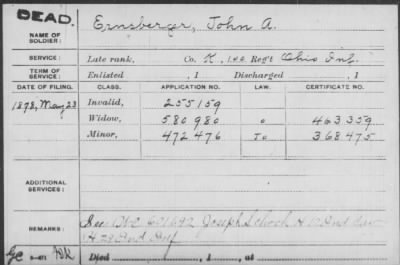 DEAD.
Ernsberger, John A.
NAME OF SOLDIER:
SERVICE: Late rank, Co. K, 142 Reg't Ohio Inf.
TERM OF SERVICE: Enlisted , 1 Discharged , 1
DATE OF FILING. CLASS. APPLICATION NO. LAW. CERTIFICATE NO.
1878, May 23 Invalid, 255159
Widow, 580980 o 463359
Minor, 472476 To 368475
ADDITIONAL SERVICES:
REMARKS: See 601692 Joseph Schock H Ind
H Ind Inf
Died , 1 , at